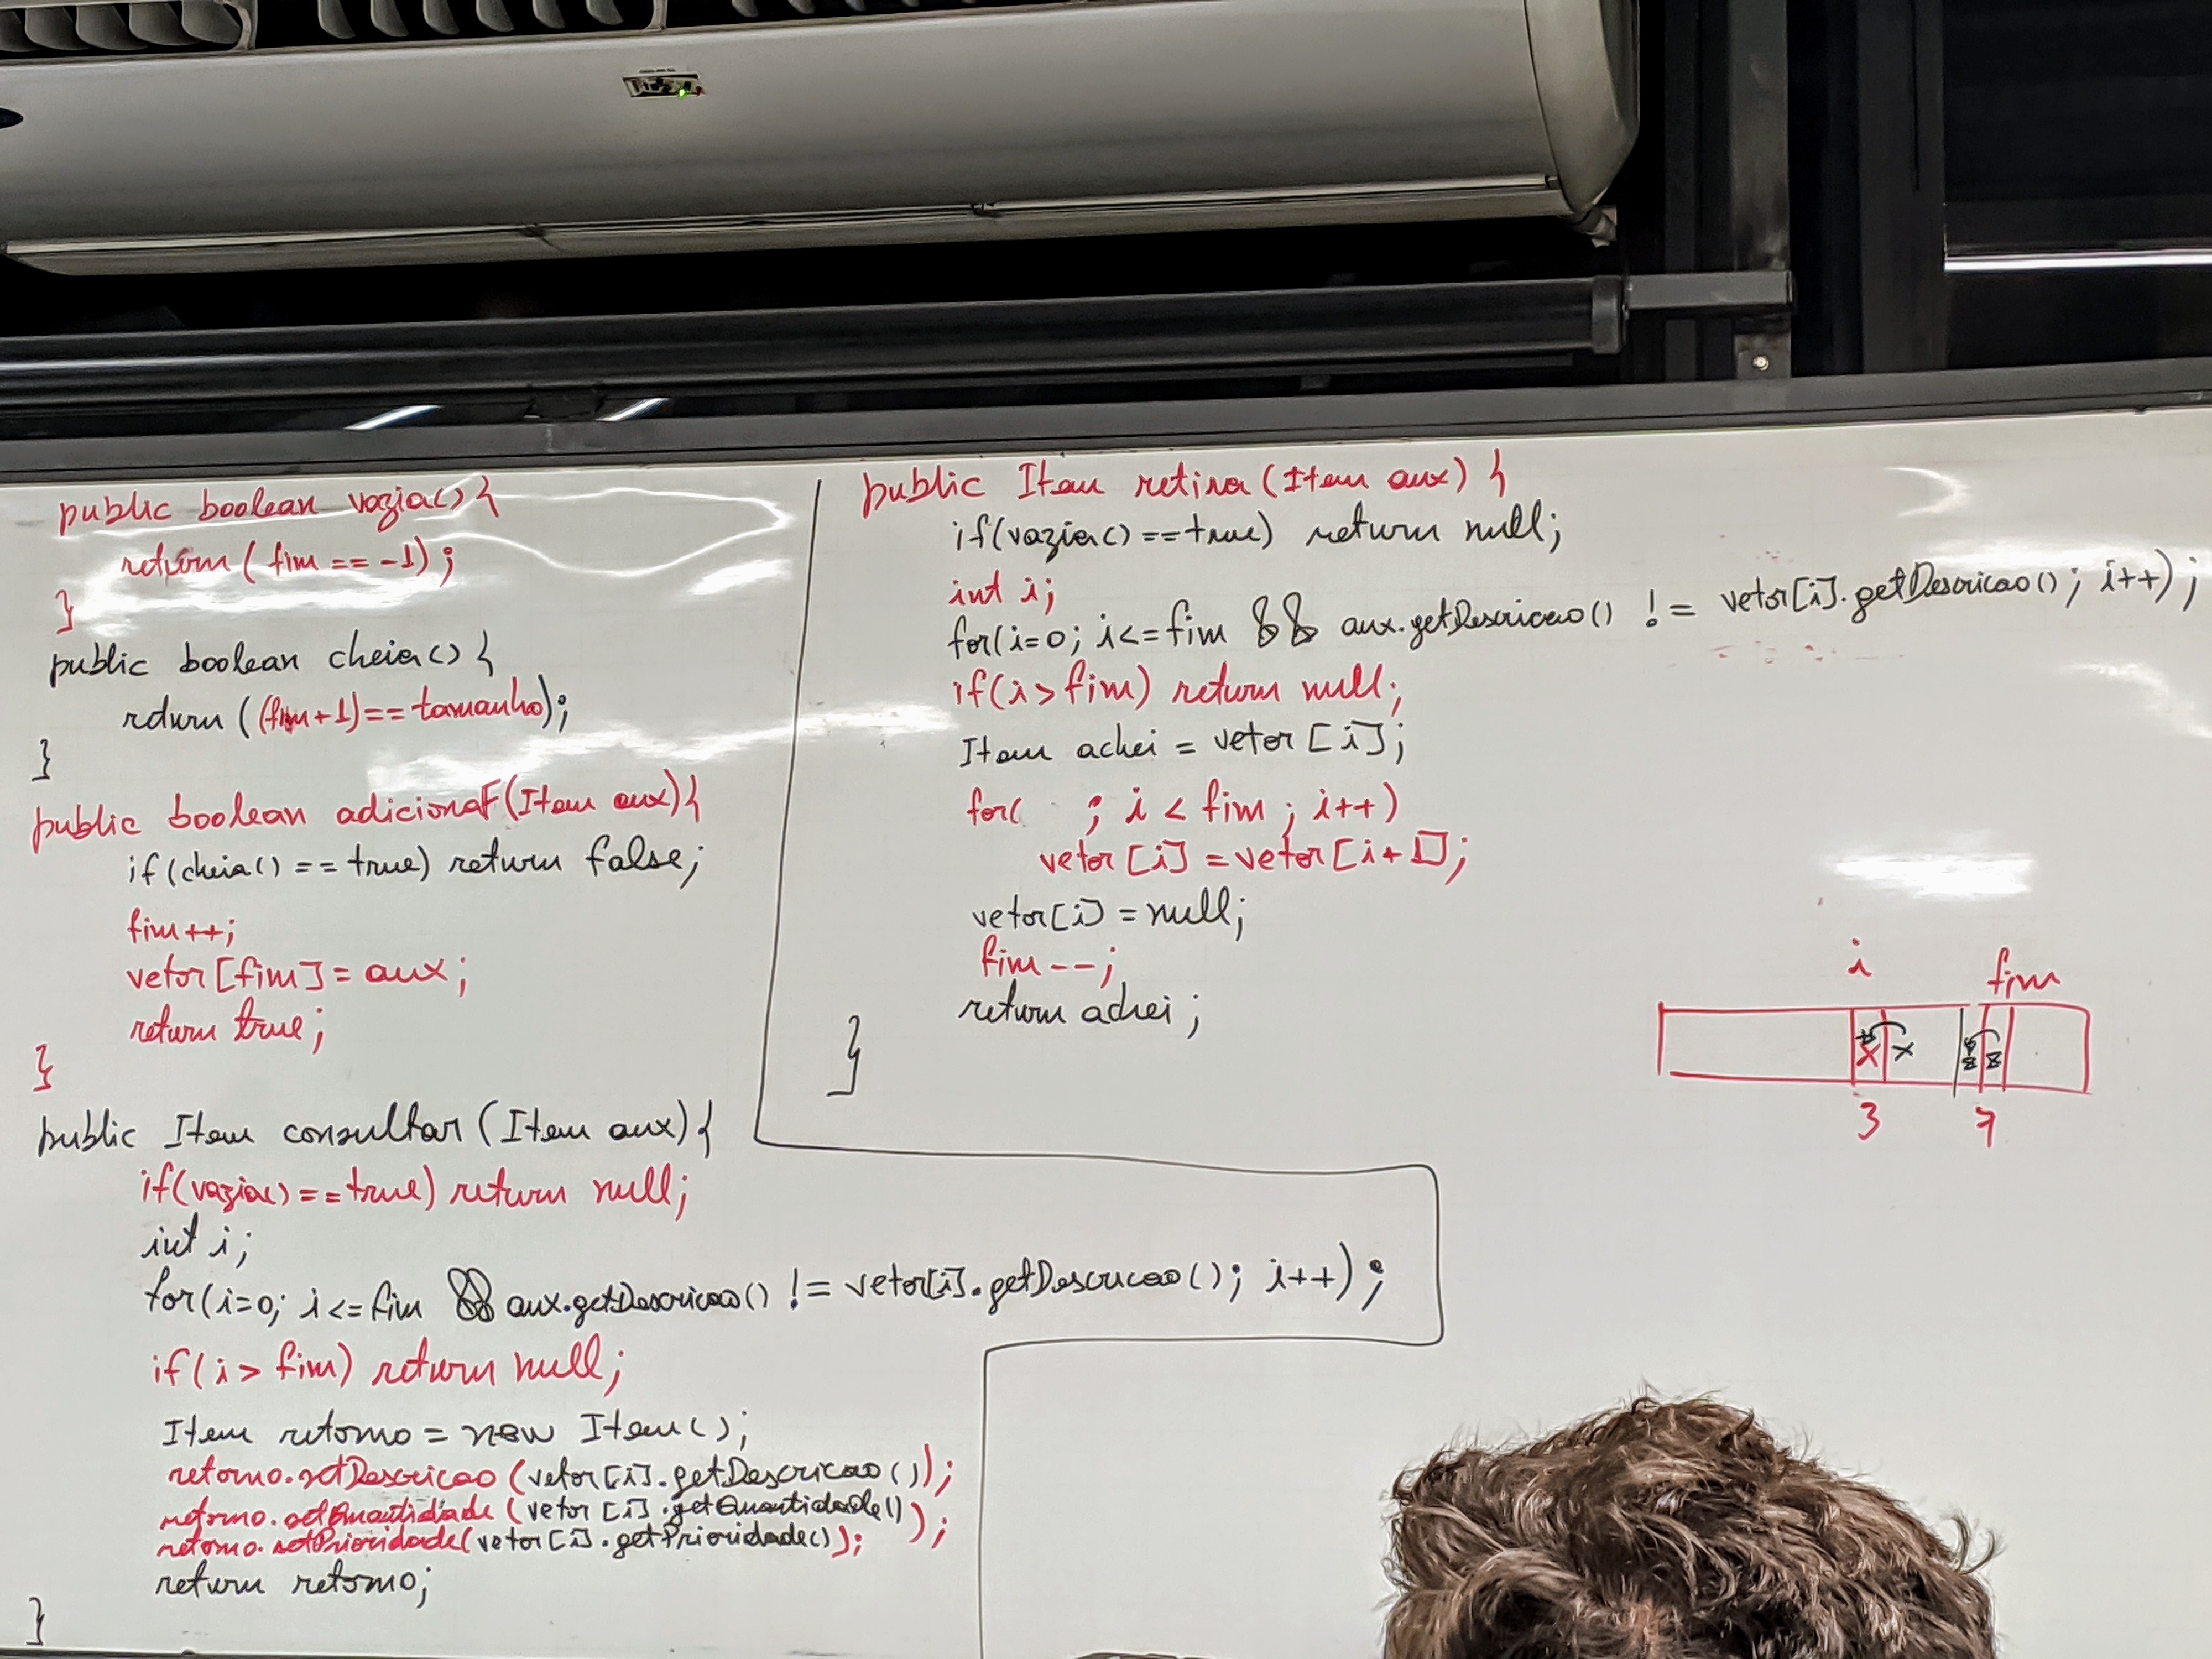 public boolean vazia() {
return ( fim == -1) ;
}
public boolean cheia() {
return ((fim+1)== tamanho);
}
public boolean adicionaF(Item aux){
if(cheia() == true) return false;
fim++;
vetor[fim] = aux;
return true;
}
public Item consultar (Item aux){
if(vazia() == true) return null;
int i;
for(i=0; i<=fim && aux.getDescricao() != vetor[i].getDescricao(); i++);
if(i > fim) return null;
Item retorno = new Item();
retorno.setDescricao (vetor[i].getDescricao());
retorno.setQuantidade (vetor[i].getQuantidade());
retorno.setPrioridade(vetor[i].getPrioridade());
return retorno;
}
public Item retira (Item aux) {
if(vazia() == true) return null;
int i;
for(i=0; i<=fim && aux.getDescricao() != vetor[i].getDescricao(); i++);
if(i > fim) return null;
Item achei = vetor[i];
for( ; i < fim ; i++)
vetor[i] = vetor[i+1];
vetor[i] = null;
fim--;
return achei;
}
i fim
x x
3 7